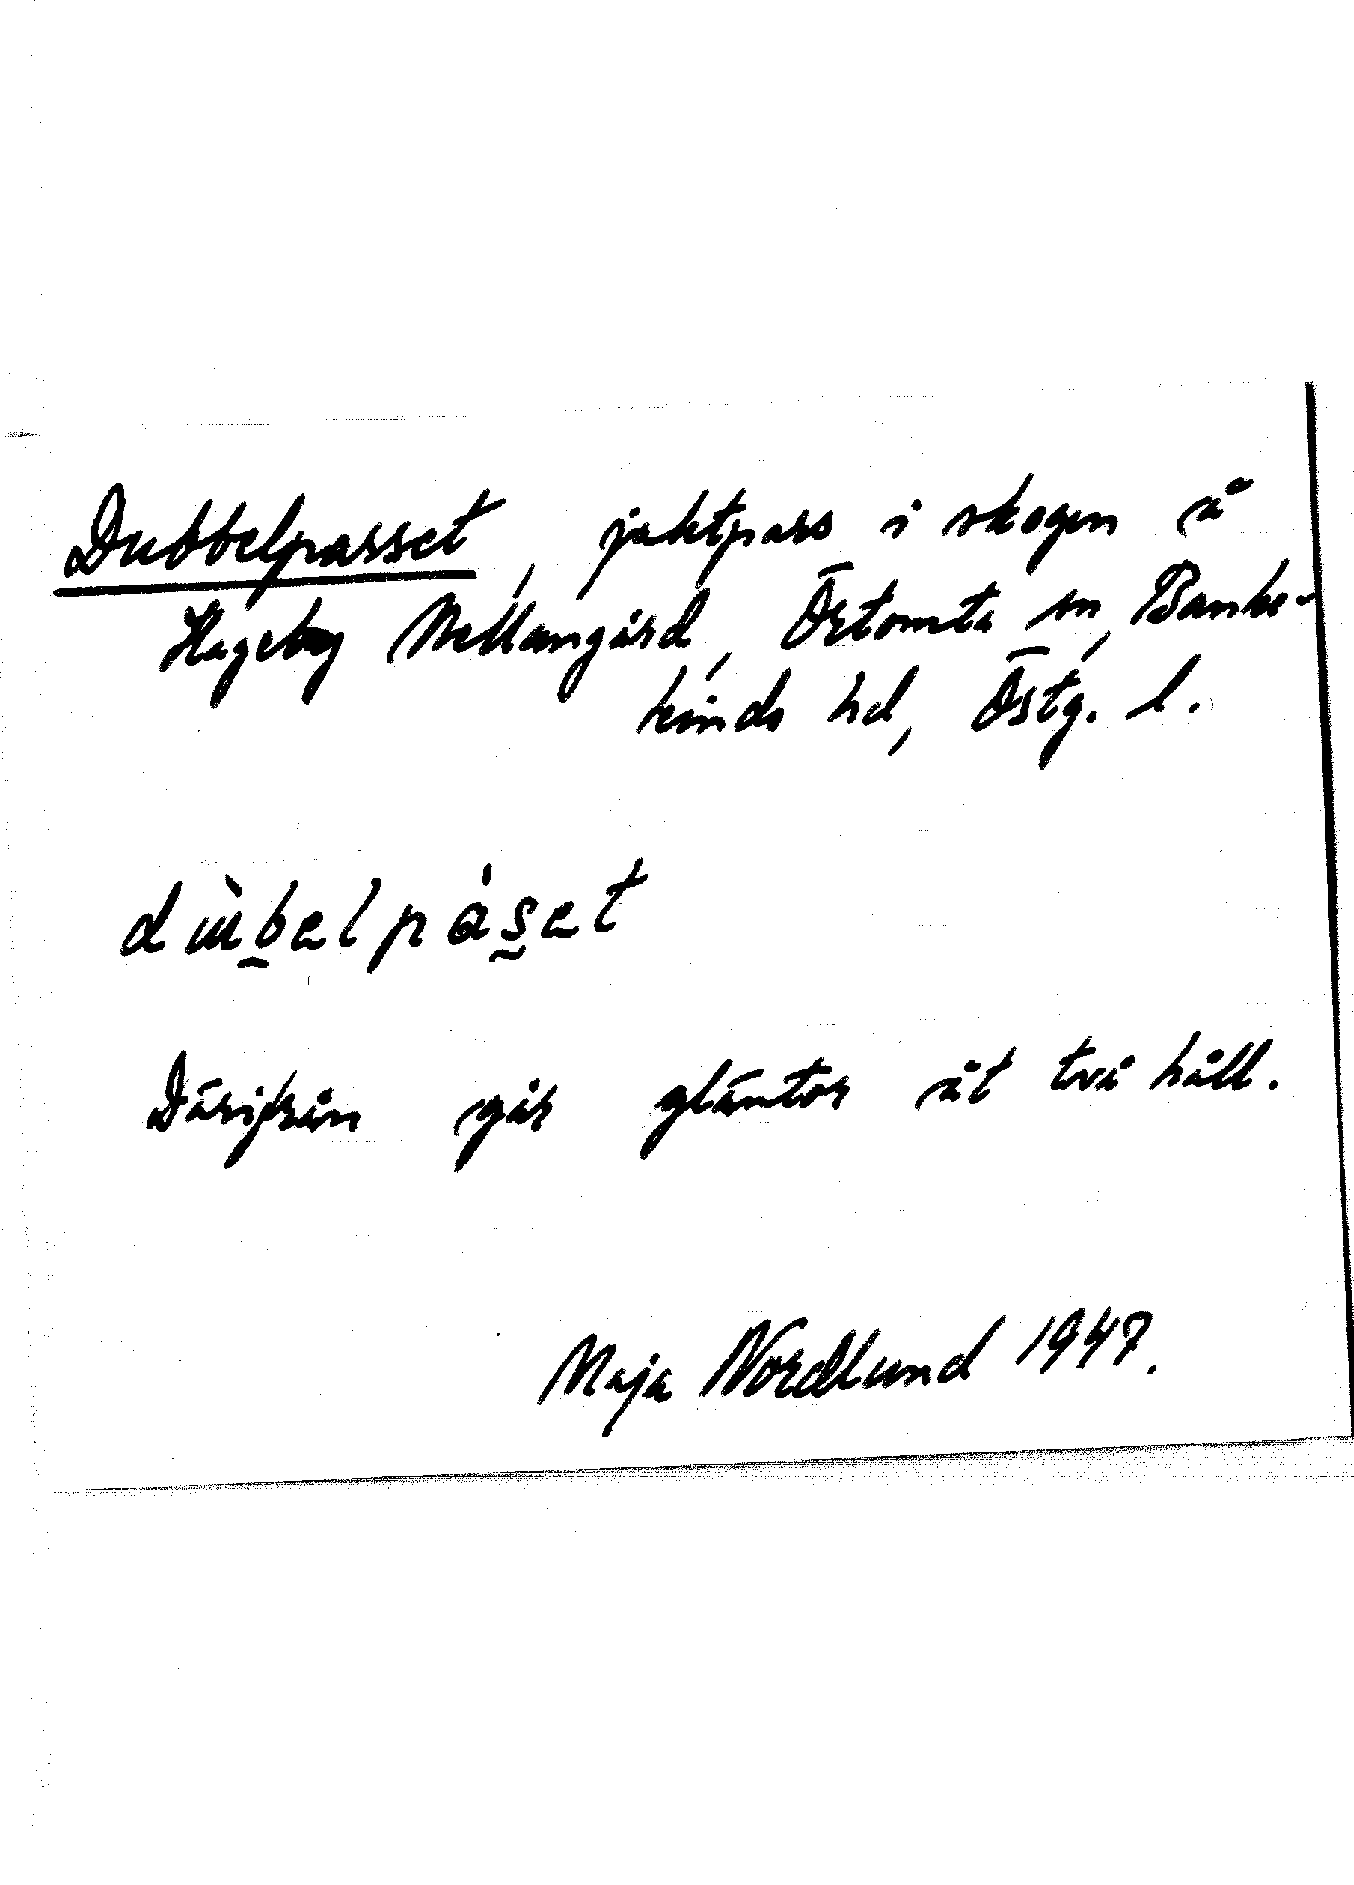 Dubbelpasset, jaktpass i skogen å
Hageby Mellangård, Östomta sn, Banke-
kinds hd, Östg. l.
dùbelpáset
Därifrån går gläntor åt två håll.
Maja Nordlund 1947.